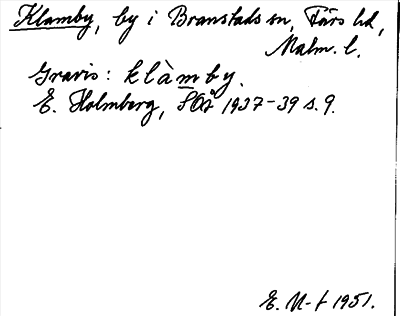 Klamby, by i Branstads sn, Färs hd,
Malm. l.
Gravis: klàmby.
E. Holmberg, SOÅ 1937-39 s. 9.
E. N-t 1951.